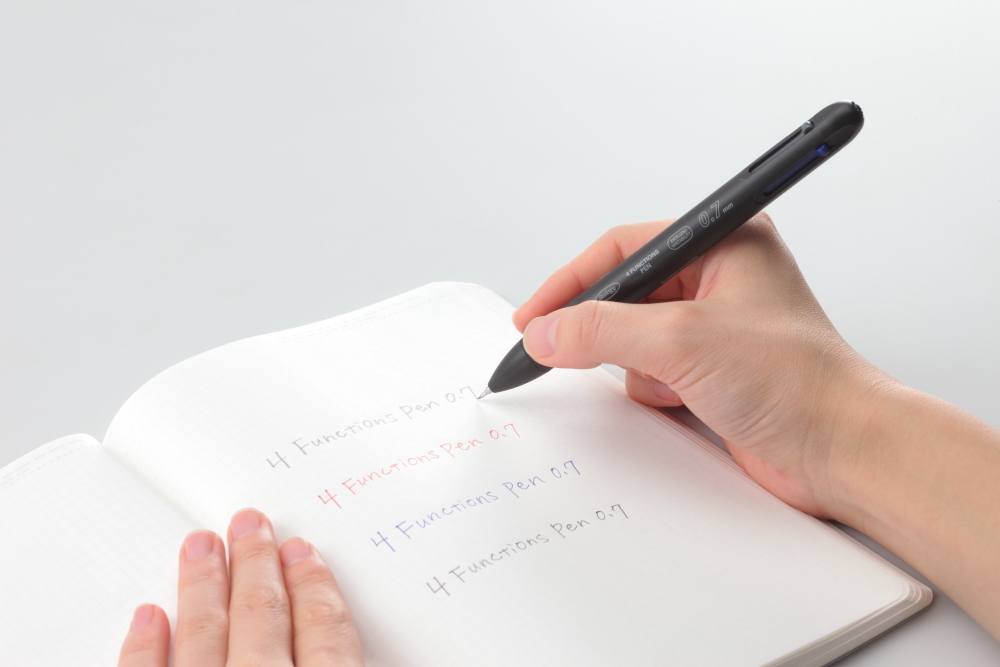 4 Functions Pen 0.7
4 Functions Pen 0.7
4 Functions Pen 0.7
4 Functions Pen 0.7
0.7 mm
4 FUNCTIONS
PEN